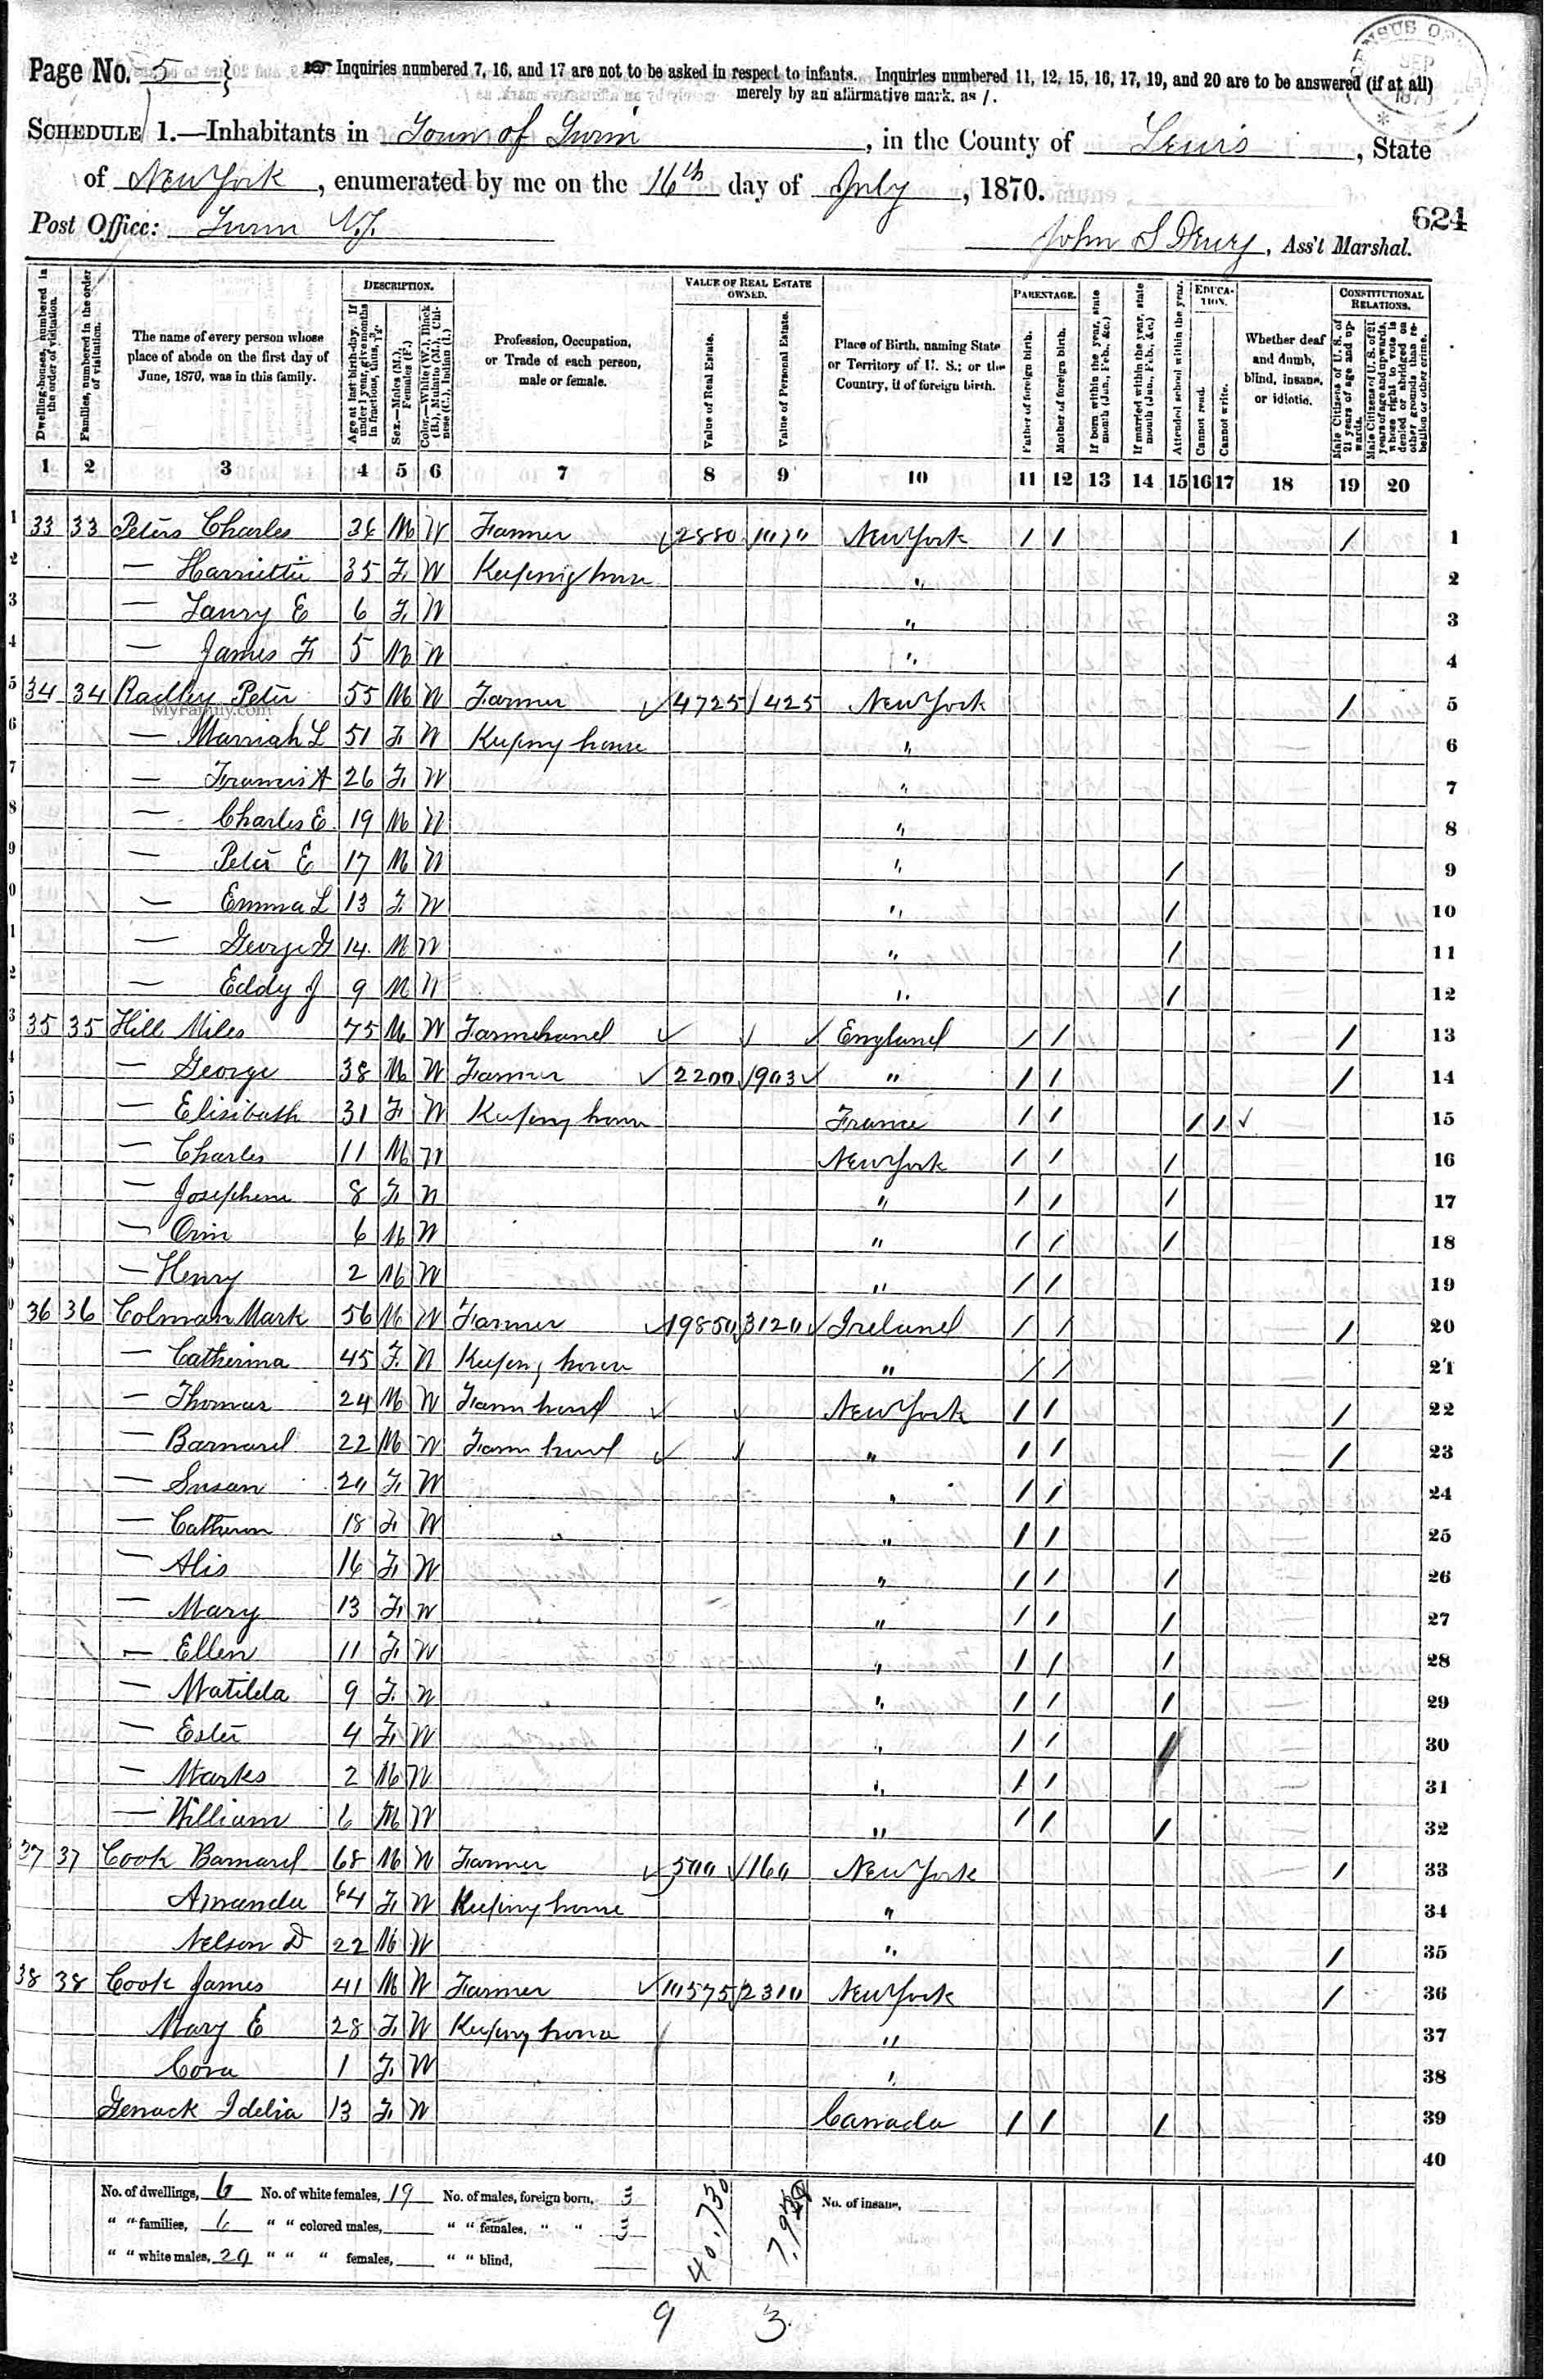 Page No. 5 } Inquiries numbered 7, 16, and 17 are not to be asked in respect to infants. Inquiries numbered 11, 12, 15, 16, 17, 19, and 20 are to be answered (if at all)
merely by an affirmative mark, as /.
SCHEDULE 1.—Inhabitants in Town of Turin, in the County of Lewis, State
of New York, enumerated by me on the 16th day of July, 1870.
624
Post Office: Turin N.Y.
John S Dewy, Ass't Marshal.
Dwelling-houses, numbered in the order of visitation.
Families, numbered in the order of visitation.
The name of every person whose place of abode on the first day of June, 1870, was in this family.
DESCRIPTION.
Age at last birth-day. If under 1 year, give months in fractions, thus, 3/12.
Sex.—Males (M.), Females (F.)
Color.—White (W.), Black (B.), Mulatto (M.), Chinese (C.), Indian (I.)
Profession, Occupation, or Trade of each person, male or female.
VALUE OF REAL ESTATE OWNED.
Value of Real Estate.
Value of Personal Estate.
Place of Birth, naming State or Territory of U. S.; or the Country, if of foreign birth.
PARENTAGE.
Father of foreign birth.
Mother of foreign birth.
If born within the year, state month (Jan., Feb., &c.)
If married within the year, state month (Jan., Feb., &c.)
Attended school within the year.
EDUCATION.
Cannot read.
Cannot write.
Whether deaf and dumb, blind, insane, or idiotic.
CONSTITUTIONAL RELATIONS.
Male Citizens of U. S. of 21 years of age and upwards.
Male Citizens of U. S. of 21 years of age and upwards, whose right to vote is denied or abridged on other grounds than rebellion or other crime.
1 2 3 4 5 6 7 8 9 10 11 12 13 14 15 16 17 18 19 20
33 33 Peters Charles M W Farmer 2880 New York / / / 1
— Harriettie 35 F W Keeping house " 2
— E 6 F W " 3
— James F 5 M W " 4
34 34 Radley Peter 55 M W Farmer 4725 1425 New York / 5
MyFamily.com
— Marriah L 51 F W Keeping house " 6
— Francis A 26 F W " 7
— Charles E 19 M W " 8
— Peter E 17 M W " / 9
— Emma L 13 F W " / 10
— George 14 M W " / 11
— Eddy J 9 M W " / 12
35 35 Hill Miles 75 M W Farmehand England / / / 13
— George 38 M W Farmer 2200 903 " / / / 14
— Elisibath 31 F W Keeping house France / / / / 15
— Charles 11 M W New York / / / 16
— Josephene 8 F W " / / / 17
— Orin 6 M W " / / / 18
— Henry 2 M W " / / 19
36 36 Colman Mark 56 M W Farmer 19850 3120 Ireland / / / 20
— Catherina 45 F W Keeping house " / / 21
— Thomas 24 M W Farm hand New York / / / 22
— Barnard 22 M W Farm hand " / / / 23
— Susan 20 F W " / / 24
— Cathern 18 F W " / / 25
— Alis 16 F W " / / / 26
— Mary 13 F W " / / / 27
— Ellen 11 F W " / / / 28
— Matilda 9 F W " / / / 29
— Ester 4 F W " / / / 30
— Marks 2 M W " / / 31
— William 6 M W " / / / 32
37 37 Cook Barnard 68 M W Farmer 500 160 New York / 33
Amanda 64 F W Keeping house " 34
Nelson D 22 M W " / 35
38 38 Cook James 41 M W Farmer 10575 2310 New York / 36
Mary E 28 F W Keeping house " 37
Cora 1 F W " 38
Idelia 13 F W Canada / / / 39
40
No. of dwellings, 6 No. of white females, 19 No. of males, foreign born, 3 40,730 No. of insane,
" " families, 6 " " colored males, " " females, " " 3
" " white males, 20 " " " females, " " blind,
9 3